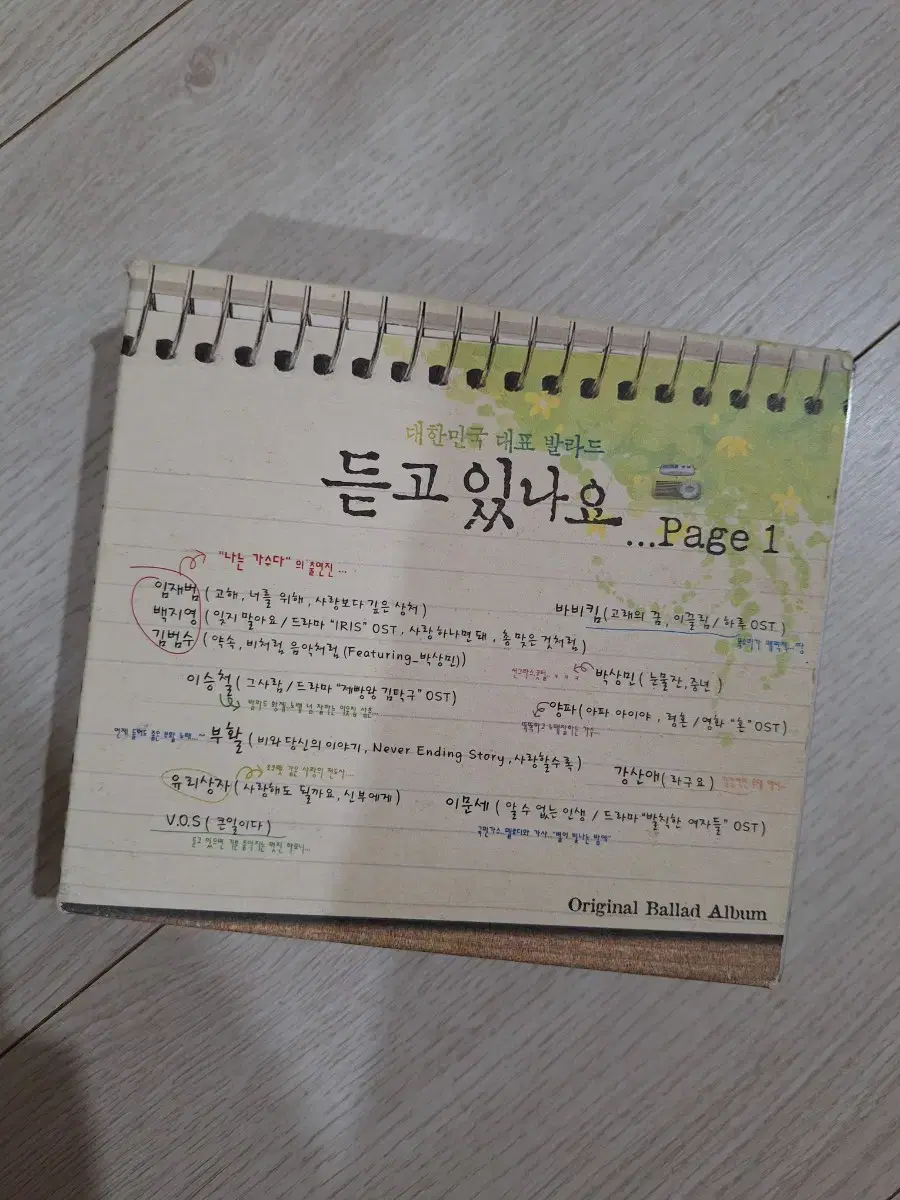 대한민국 대표 발라드
듣고 있나요
...Page 1
"나는 가수다" 의 출연진 ...
임재범 ( 고해, 너를 위해, 사랑보다 깊은 상처 )
백지영 ( 잊지 말아요 / 드라마 "IRIS" OST, 사랑 하나면 돼, 총 맞은 것처럼 )
김범수 ( 약속, 비처럼 음악처럼 (Featuring_박상민))
바비킴 (고래의 꿈, 이끌림 / 하루 OST )
이승철 ( 그사람 / 드라마 "제빵왕 김탁구" OST)
박상민 ( 눈물잔, 중년 )
양파 (아파 아이야, 령혼 / 영화 "혼" OST)
부활 ( 비와 당신의 이야기, Never Ending Story, 사랑할수록 )
강산애 (라구요 )
유리상자 ( 사랑해도 될까요, 신부에게 )
이문세 ( 알 수 없는 인생 / 드라마 "발칙한 여자들" OST)
V.O.S ( 큰일이다 )
Original Ballad Album